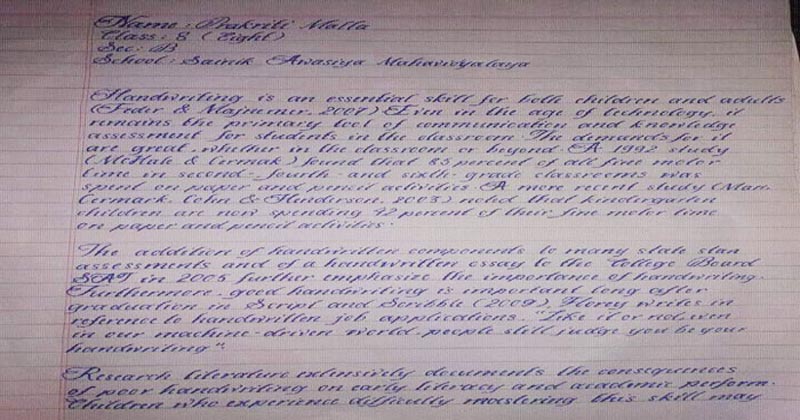 Name : Prakriti Malla
Class : 8 (Eight)
Sec : B
School : Sainik Awasiya Mahavidyalaya
Handwriting is an essential skill for both children and adults
(Feder & Majnemer, 2007) Even in the age of technology, it
remains the primary tool of communication and knowledge
assessment for students in the classroom. The demands for it
are great, whether in the classroom or beyond. A 1992 study
(McHale & Cermak) found that 85 percent of all fine motor
time in second-, fourth- and sixth-grade classrooms was
spent on paper and pencil activities. A more recent study (Marr,
Cermark, Cohn & Henderson, 2003) noted that kindergarten
children are now spending 42 percent of their fine motor time
on paper and pencil activities.
The addition of handwritten components to many state stan
assessments and of a handwritten essay to the College Board
SAT in 2005 further emphasize the importance of handwriting.
Furthermore, good handwriting is important long after
graduation. in Script and Scribble (2009), Florey writes in
reference to handwritten job applications, "Like it or not, even
in our machine-driven world, people still judge you be your
handwriting".
Research literature extensively documents the consequences
of poor handwriting on early literacy and academic perform.
Children who experience difficulty mastering this skill may